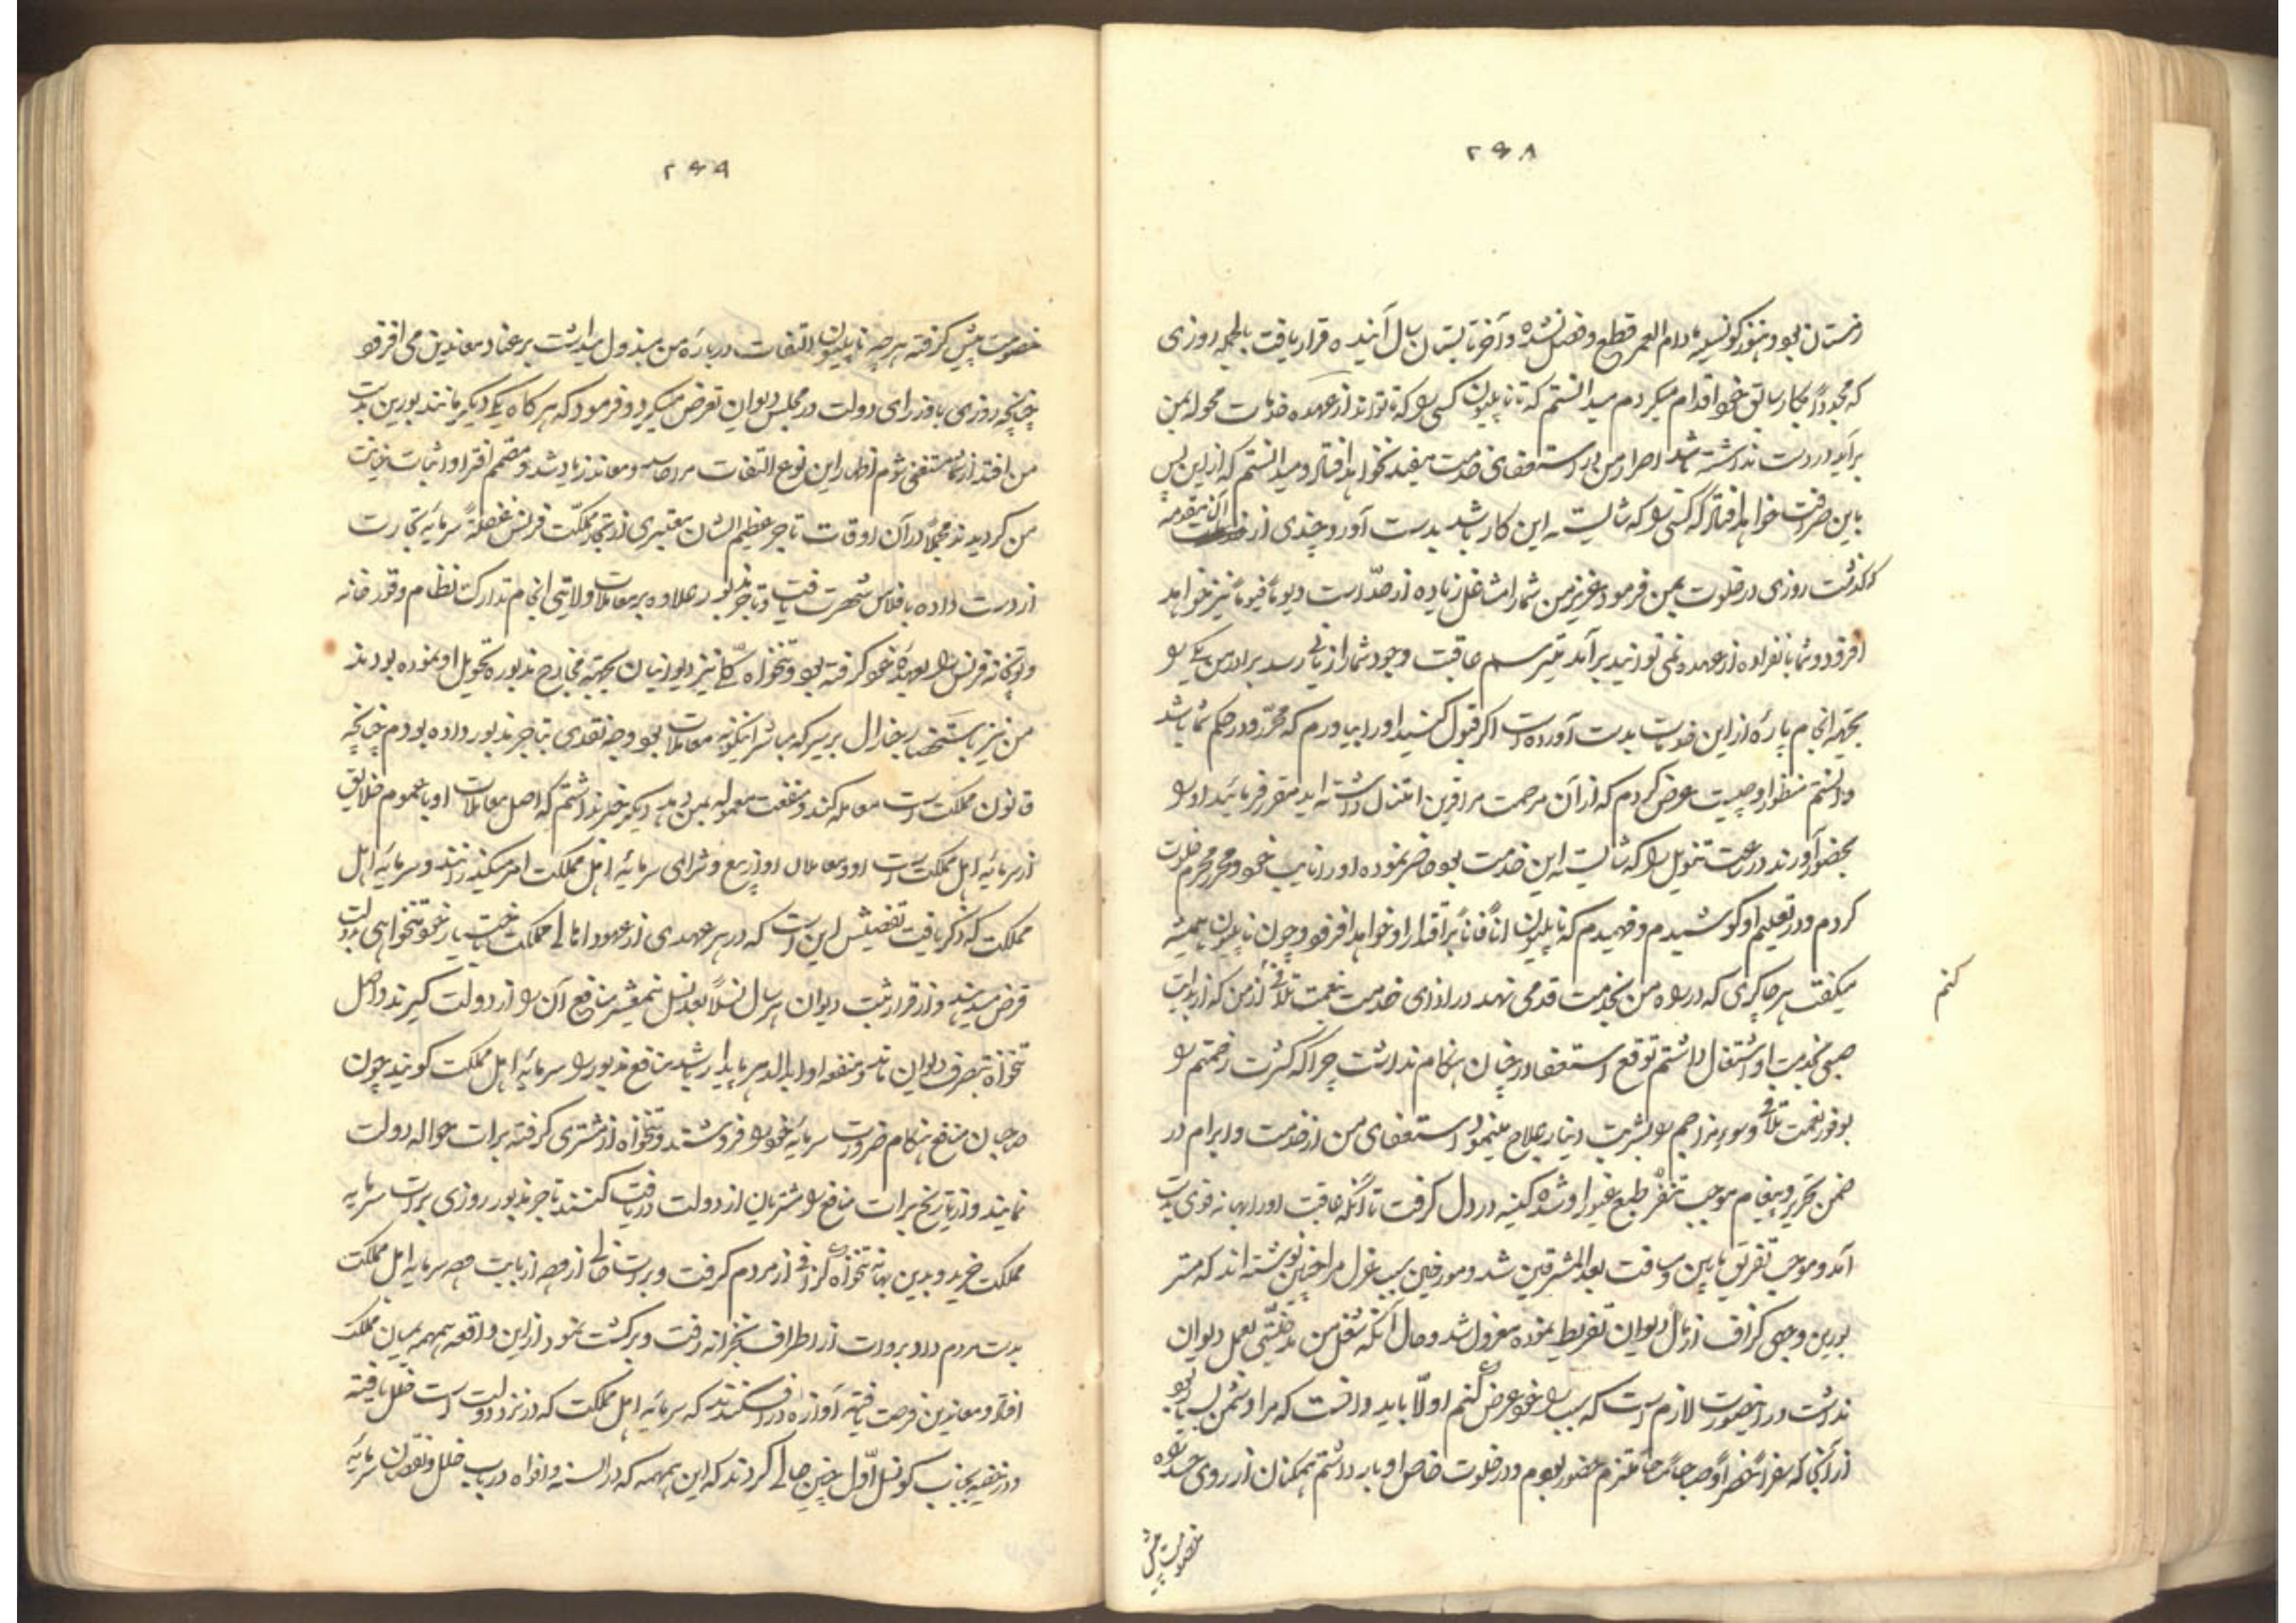 ۲۶۸
زمستان بود و هنوز کونسلیه مادام العمر قطع و فصل نشده و آخر تابستان سال آینده قرار یافت بالجمله روزی
که مجدداً بکار سابق خود اقدام میکردم میدانستم که تا ناپلیون کسی را که تواند از عهده خدمات محوله بمن
برآید در دست نداشته باشد اصرار من در استعفای خدمت مفید نخواهد افتاد و میدانستم که از این پس
باین صرافت خواهد افتاد که کسی را که شایسته این کار باشد بدست آورد چندی از آن مقدمه
گذشت روزی در خلوت بمن فرمود عزیز من شما را مشاغل زیاده از حد است و یوماً فیوماً نیز خواهد
افزود و شما بانفراده از عهده نمی توانید برآمد میترسم عاقبت وجود شما را زیانی رسد برادر من یکی را
بجهة انجام پاره از این خدمات بدست آورده است اگر قبول کنید او را بیاورم که محرر و در حکم شما باشد
دانستم منظور او چیست عرض کردم که از آن مرحمت مرا قرین امتنان داشته اید مقرر فرمائید او را
بحضور آورند در ساعت منویل را که شایسته این خدمت بود حاضر نموده او را نایب خود و محرر محرم خلوت
کردم و در تعلیم او کوشیدم و فهمیدم که ناپلیون آناً فآناً بر اقتدار او خواهد افزود و چون ناپلیون همیشه
میگفت هر چاکری که در راه من بخدمت قدمی نهد در ازای خدمت بنعمت تلافی کنم از من که از بدایت
صبی بخدمت او اشتغال داشتم توقع استعفا در چنان هنگام نداشت چرا که کثرت زحمتم را
بوفور نعمت تلافی و سوء مزاجم را بشربت دینار علاج مینمود استعفای من از خدمت و ابرام در
ضمن تحریر و پیغام موجب تنفر طبع غیور او شده کینه در دل گرفت تا آنکه عاقبت او را بهانه قوی بدست
آمد و موجب تفریق مابین و مسافت بعد المشرقین شد و مورخین سبب عزل مرا چنین نوشته اند که مستر
بورین وجهی گزاف از مال دیوان تفریط نموده معزول شد و حال آنکه شغل من مدخلیتی بعمل دیوان
نداشت در اینصورت لازم است که سبب را خود عرض کنم اولاً باید دانست که مرا دشمن بسیار بود
از آنجا که سفراً و حضراً و صباحاً و مساءً ملتزم حضور بودم و در خلوت خاص او بار داشتم همگنان از روی حسد راه
خصومت پیش
۲۶۹
خصومت پیش گرفته هر چه ناپلیون التفات درباره من مبذول میداشت بر عناد معاندین می افزود
چنانچه روزی با وزرای دولت در مجلس دیوان تعرض میکرد و فرمود که هر گاه یکی دیگر مانند بورین بدست
من افتد از شما مستغنی شوم اظهار این نوع التفات مرا حاسد و معاند زیاد شد و مصمم افترا و اثبات خیانت
من گردیدند مجملاً در آن اوقات تاجر عظیم الشان معتبری از تجار مملکت فرانس غفلةً سرمایه تجارت
از دست داده بافلاس شهرت یافت و تاجر مزبور علاوه بر معاملات ولایتی انجام تدارکات نظام و قورخانه
و توپخانه فرانس را بعهده خود گرفته بود و تنخواه کلی نیز دیوانیان بجهة مخارج مزبوره تحویل او نموده بودند
من نیز باستحضار جنرال برییر که مباشر اینگونه معاملات بود وجه نقدی بتاجر مزبور داده بودم چنانچه
قانون مملکت است معامله کند و منفعت معموله بمن دهد دیگر خبر نداشتم که اصل معاملات او با عموم خلایق
از سرمایه اهل مملکت است او و معاملان او از بیع و شرای سرمایه اهل مملکت امر میگذرانند و سرمایه اهل
مملکت که ذکر یافت تفصیلش این است که در هر عهدی از عهود اهالی مملکت باختیار خود تنخواهی بدولت
قرض میدهند و از قرار ثبت دیوان هر سال نسلاً بعد نسل نیمعشر منافع آن را از دولت گیرند و اصل
تنخواه بتصرف دیوان ماند و منفعه او ابدالدهر پایدار باشد منافع مزبور را سرمایه اهل مملکت گویند چون
صاحبان منافع هنگام ضرورت سرمایه خود را فروشند و تنخواه از مشتری گرفته برات حواله دولت
نمایند و از تاریخ برات منافع را مشتریان از دولت دریافت کنند تاجر مزبور روزی برات سرمایه
مملکت خرید و بدین بهانه تنخواه گزافی از مردم گرفت و برات خالی از وجه از بابت وجه سرمایه اهل مملکت
بدست مردم داد و بروات از اطراف بخزانه رفت و برگشت نمود از این واقعه همهمه بمیان مملکت
افتاد و معاندین فرصت یافته آوازه در افکندند که سرمایه اهل مملکت که در نزد دولت است خلل یافته
و در خفیه بجانب کونسل اول چنین حالی کردند که این همهمه که در السنه و افواه در باب خلل و نقصان سرمایه